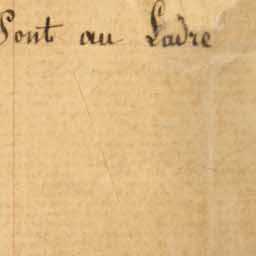 Pont au Ladre